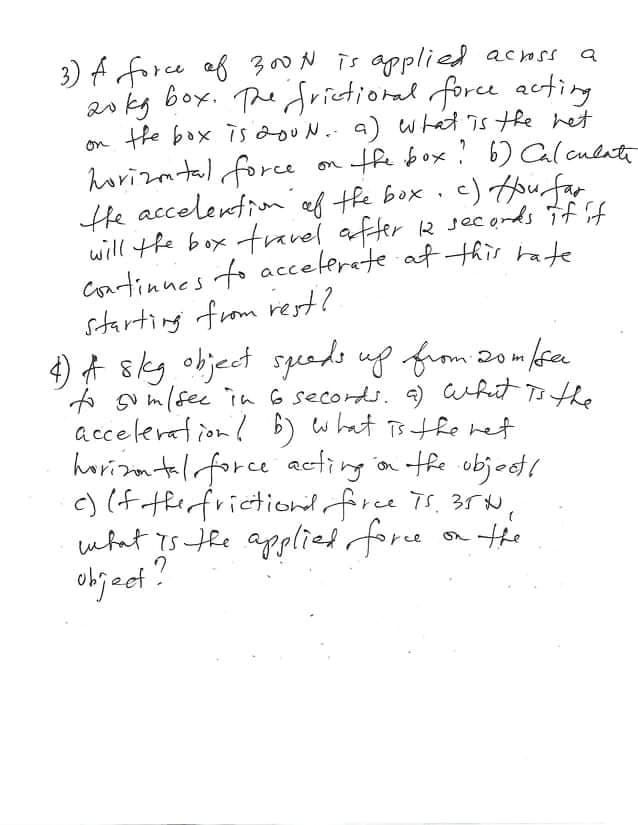 3) A force of 300 N is applied across a
20 kg box. The frictional force acting
on the box is 200 N. a) what is the net
horizontal force on the box? b) Calculate
the acceleration of the box. c) How far
will the box travel after 12 seconds if it
continues to accelerate at this rate
starting from rest?
4) A 8 kg object speeds up from 20 m/sec
to 50 m/sec in 6 seconds. a) what is the
acceleration? b) what is the net
horizontal force acting on the object?
c) If the frictional force is 35 N,
what is the applied force on the
object?